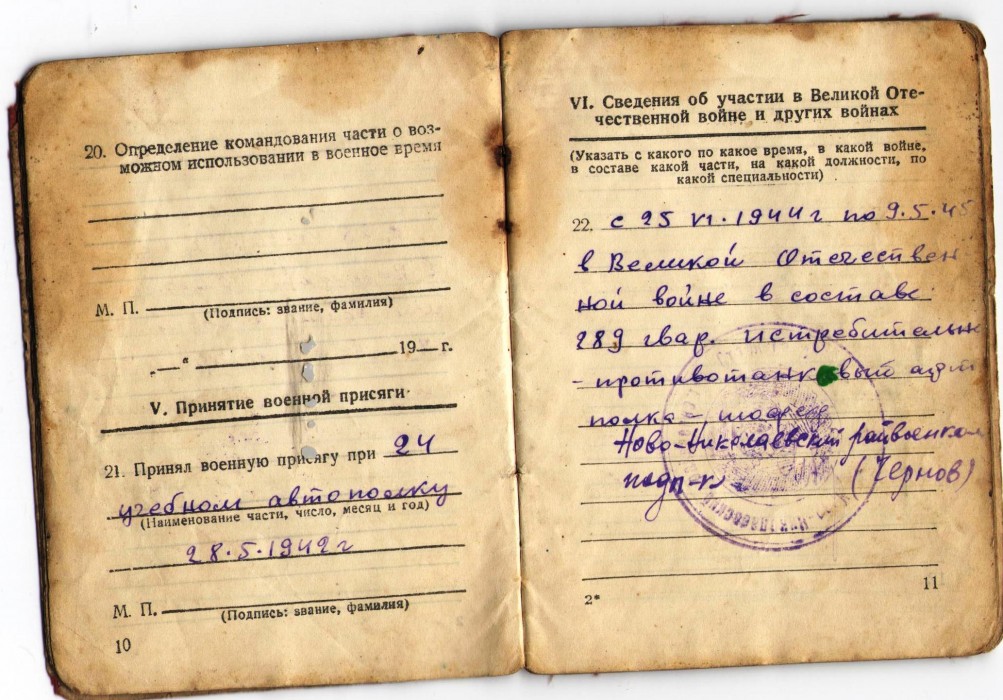 20. Определение командования части о воз-
можном использовании в военное время
М. П.
(Подпись: звание, фамилия)
„—“ 19— г.
V. Принятие военной присяги
21. Принял военную присягу при 24
учебном автополку
(Наименование части, число, месяц и год)
28.5.1942г
М. П.
(Подпись: звание, фамилия)
10
VI. Сведения об участии в Великой Оте-
чественной войне и других войнах
(Указать с какого по какое время, в какой войне,
в составе какой части, на какой должности, по
какой специальности)
22. с 25 VI.1944г по 9.5.45
в Великой Отечествен
ной войне в составе
289 гвар. истребительн
-противотанковый
полка - шофер
Ново-Николаевский райвоенком
подп-к (Чернов)
2*
11